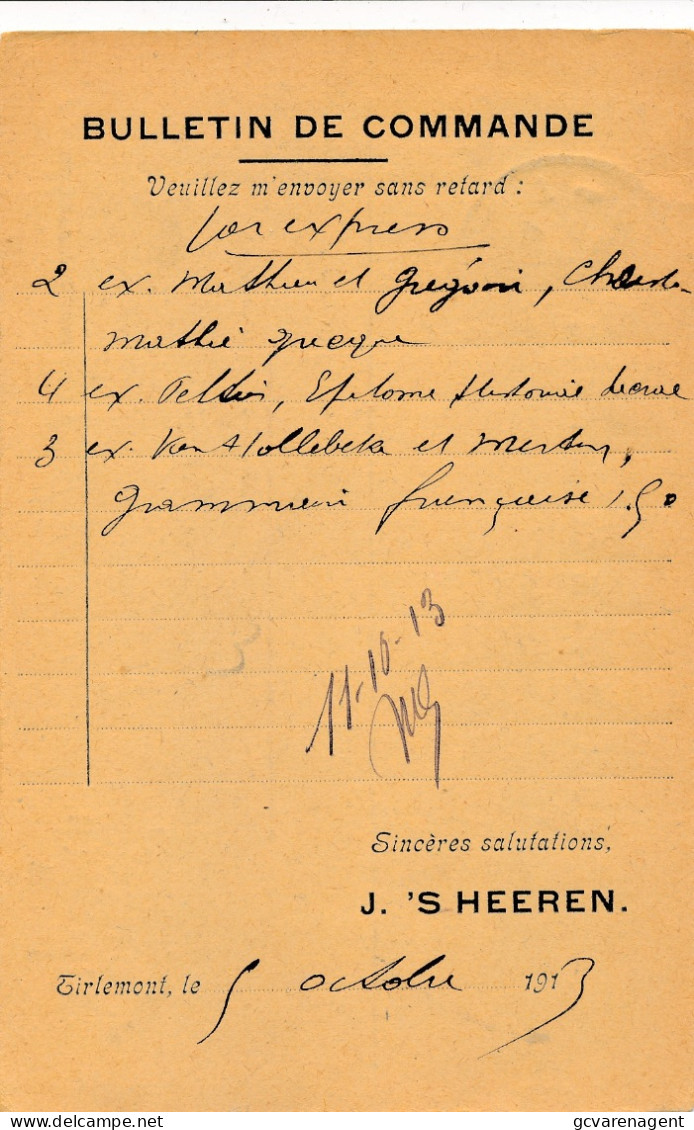 BULLETIN DE COMMANDE
Veuillez m'envoyer sans retard :
par express
2 ex. Mathieu et Grégoire, Chresto-
mathie grecque
4 ex. Epitome Historiae Sacrae
3 ex. Van Hollebeke et Merten,
grammaire française 1.50
11-10-13
Sincères salutations,
J. 'S HEEREN.
Tirlemont, le 5 octobre 1913
www.delcampe.net
gcvarenagent